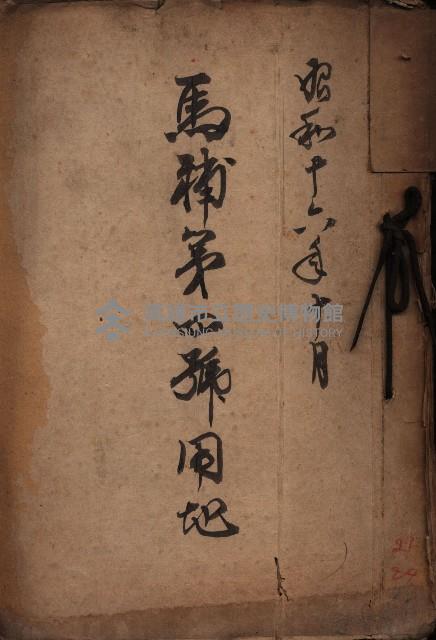 昭和十六年十月
馬補第 號用地
高雄市立歷史博物館
KAOHSIUNG MUSEUM OF HISTORY
21
24